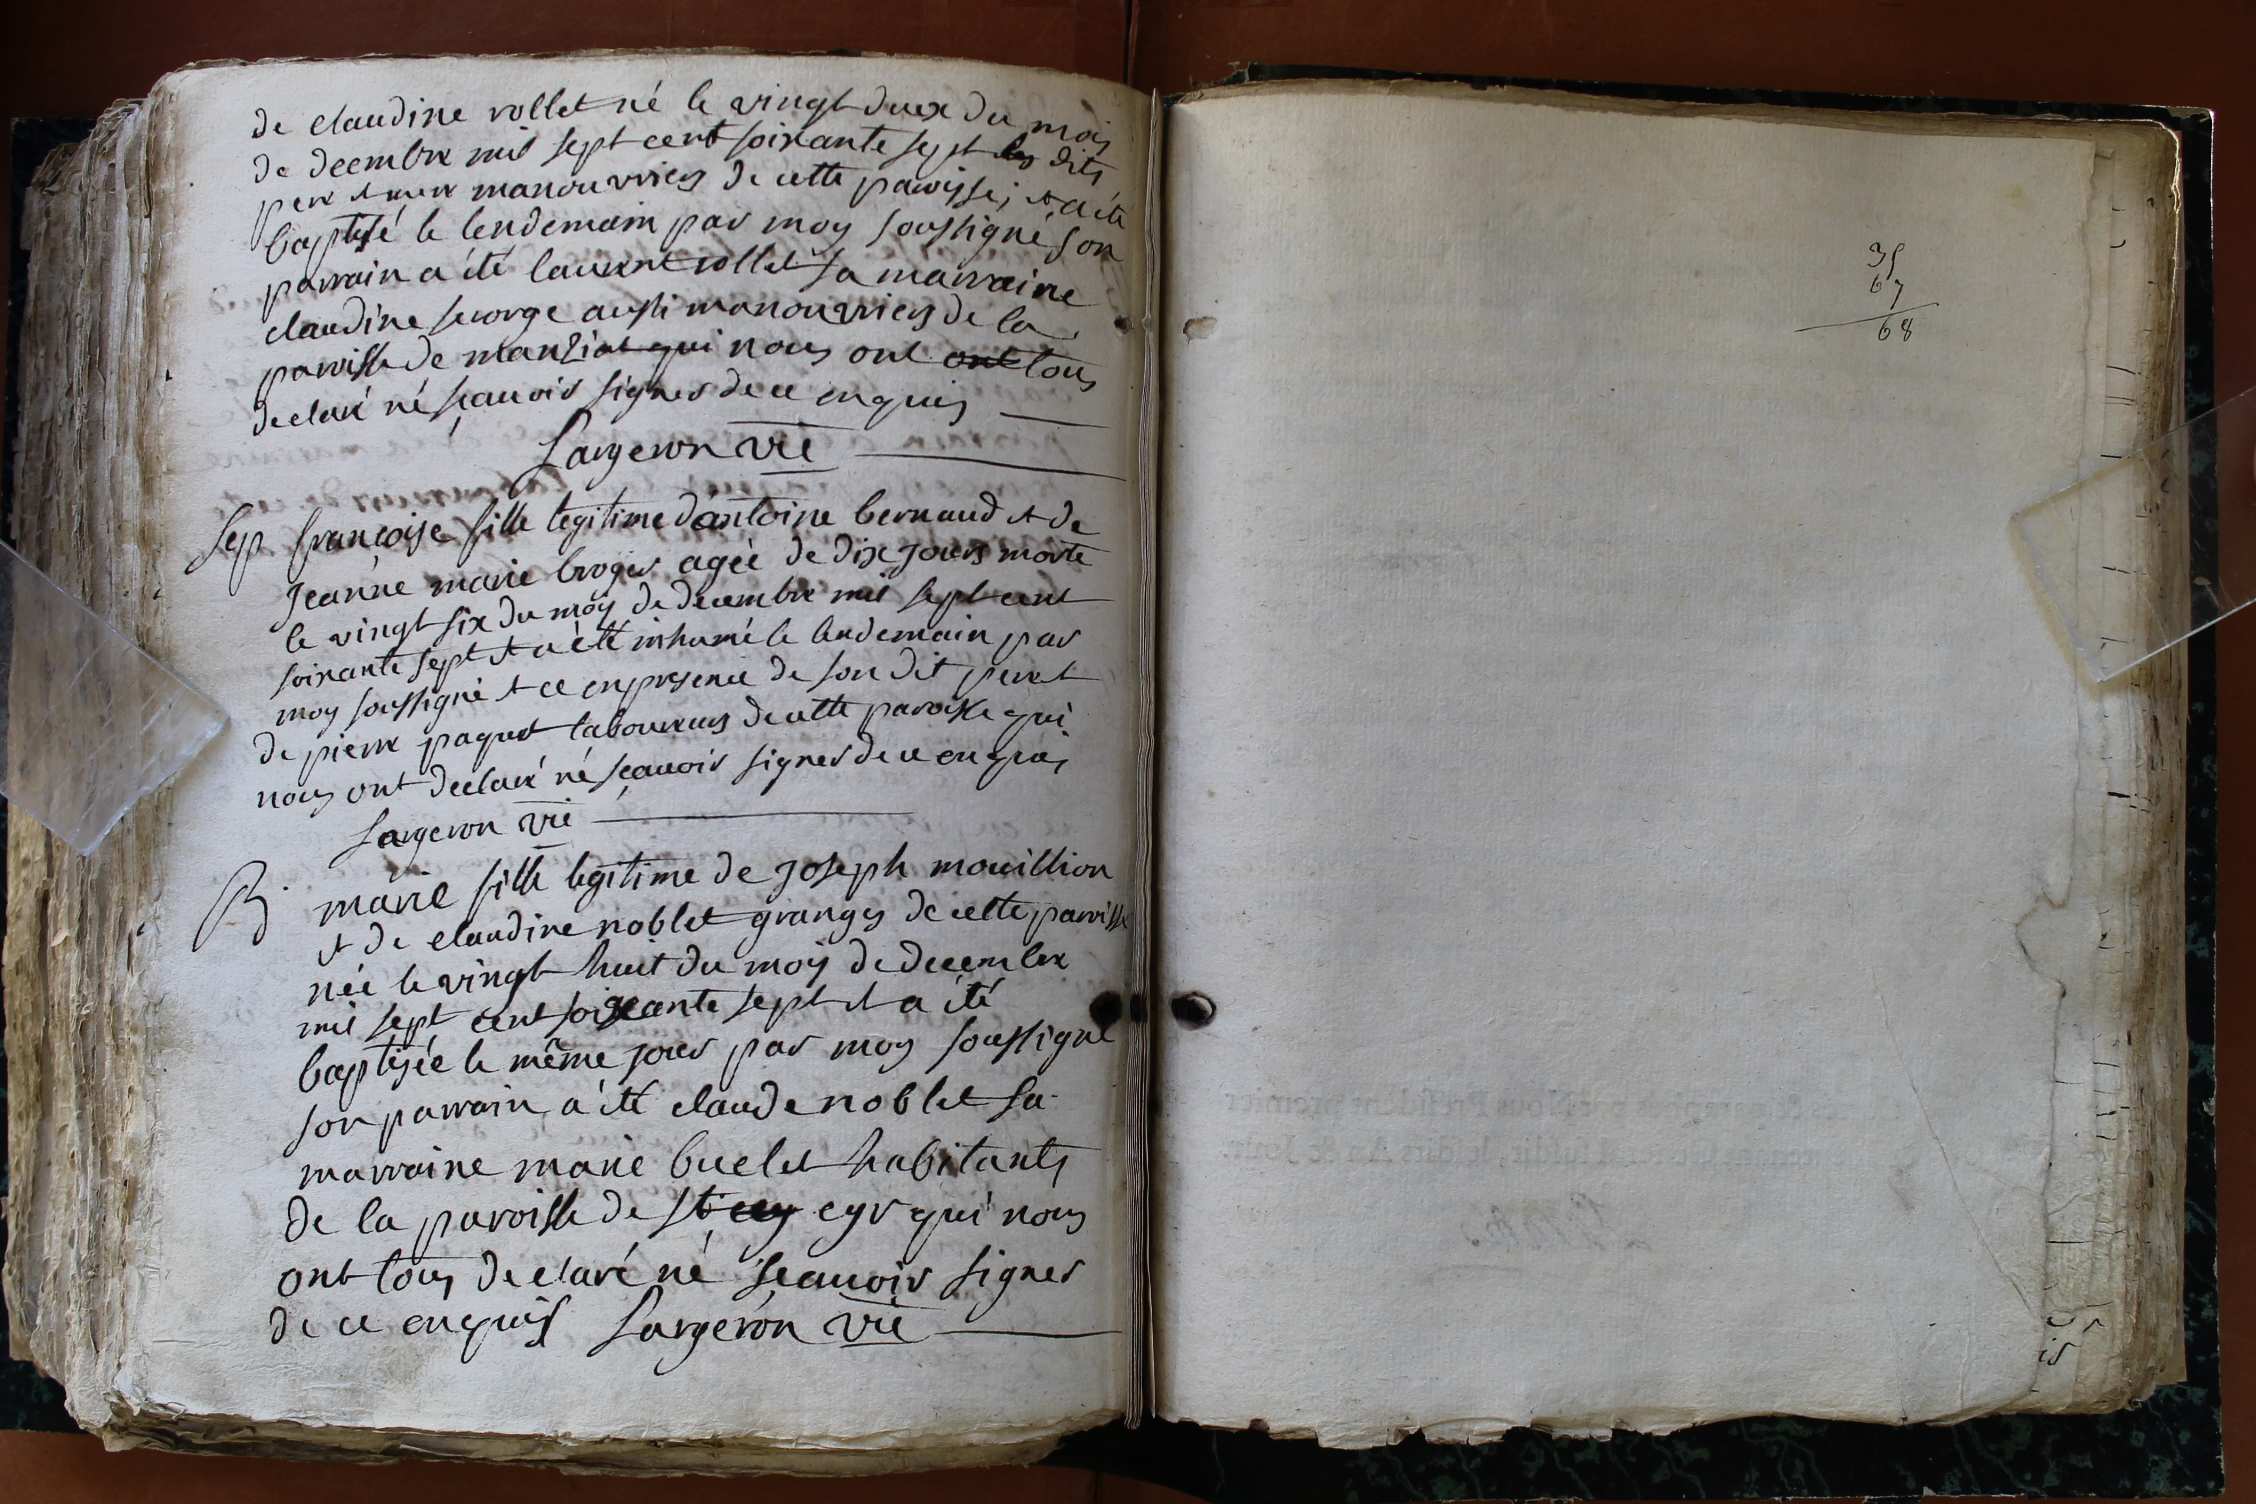 de claudine rollet né le vingt deux du mois
de decembre mil sept cent soixante sept les dits
pere et mere manouvriers de cette paroisse; et a été
baptisé le lendemain par moy soussigné son
parrain a été laurent rollet sa marraine
claudine george aussi manouvriers de la
paroisse de manziat qui nous ont ont tous
declaré né sçauoir signer de ce enquis
Largeron vic
Sep françoise fille legitime d'antoine bernaud et de
Jeanne marie broger agée de dix jours morte
le vingt six du moy de decembre mil sept cent
soixante sept et a été inhumé le lendemain par
moy soussigné et ce en presence de son dit pere et
de pierre paquet laboureurs de cette paroisse qui
nous ont declaré né sçauoir signer de ce enquis
Largeron vic
B marie fille legitime de Joseph mouillion
et de claudine noblet granger de cette paroisse
née le vingt huit du moy de decembre
mil sept cent soixante sept et a été
baptisée le même jour par moy soussigné
son parrain a été claude noblet sa
marraine marie buelet habitants
de la paroisse de st cyr qui nous
ont tous declaré né sçauoir signer
de ce enquis Largeron vic
35
67
68